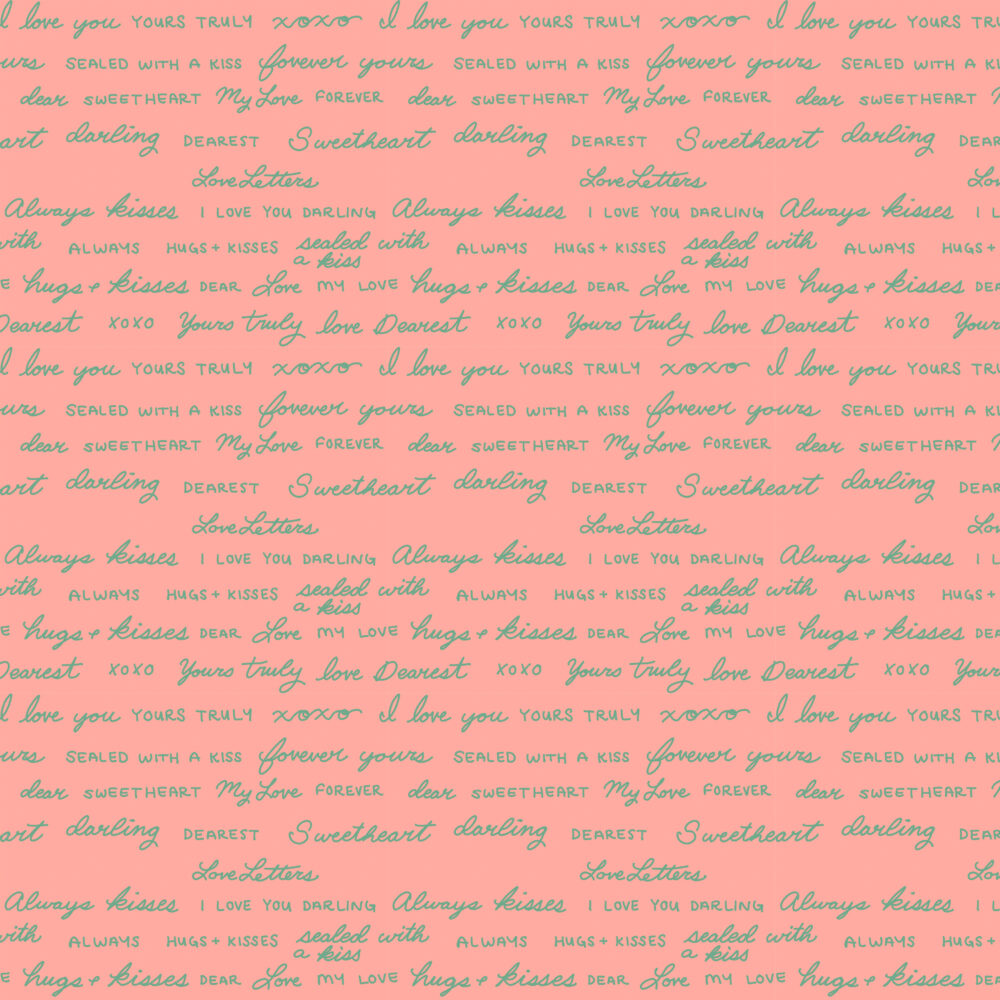 I love you YOURS TRULY xoxo I love you YOURS TRULY xoxo I love you YOURS TRU
urs SEALED WITH A KISS forever yours SEALED WITH A KISS forever yours SEALED WITH A KI
dear SWEETHEART My Love FOREVER dear SWEETHEART My Love FOREVER dear SWEETHEART
art darling DEAREST Sweetheart darling DEAREST Sweetheart darling DEAR
Love Letters Love Letters Lov
Always kisses I LOVE YOU DARLING Always kisses I LOVE YOU DARLING Always kisses I L
with ALWAYS HUGS + KISSES sealed with ALWAYS HUGS + KISSES sealed with ALWAYS HUGS +
a kiss a kiss
E hugs + kisses DEAR Love MY LOVE hugs + kisses DEAR Love MY LOVE hugs + kisses DEA
Dearest XOXO Yours truly love Dearest XOXO Yours truly love Dearest XOXO Your
I love you YOURS TRULY xoxo I love you YOURS TRULY xoxo I love you YOURS TRU
urs SEALED WITH A KISS forever yours SEALED WITH A KISS forever yours SEALED WITH A KI
dear SWEETHEART My Love FOREVER dear SWEETHEART My Love FOREVER dear SWEETHEART
art darling DEAREST Sweetheart darling DEAREST Sweetheart darling DEAR
Love Letters Love Letters Lov
Always kisses I LOVE YOU DARLING Always kisses I LOVE YOU DARLING Always kisses I L
with ALWAYS HUGS + KISSES sealed with ALWAYS HUGS + KISSES sealed with ALWAYS HUGS +
a kiss a kiss
E hugs + kisses DEAR Love MY LOVE hugs + kisses DEAR Love MY LOVE hugs + kisses DEA
Dearest XOXO Yours truly love Dearest XOXO Yours truly love Dearest XOXO Your
I love you YOURS TRULY xoxo I love you YOURS TRULY xoxo I love you YOURS TRU
urs SEALED WITH A KISS forever yours SEALED WITH A KISS forever yours SEALED WITH A KI
dear SWEETHEART My Love FOREVER dear SWEETHEART My Love FOREVER dear SWEETHEART
art darling DEAREST Sweetheart darling DEAREST Sweetheart darling DEAR
Love Letters Love Letters Lov
Always kisses I LOVE YOU DARLING Always kisses I LOVE YOU DARLING Always kisses I L
with ALWAYS HUGS + KISSES sealed with ALWAYS HUGS + KISSES sealed with ALWAYS HUGS +
a kiss a kiss
E hugs + kisses DEAR Love MY LOVE hugs + kisses DEAR Love MY LOVE hugs + kisses DEA